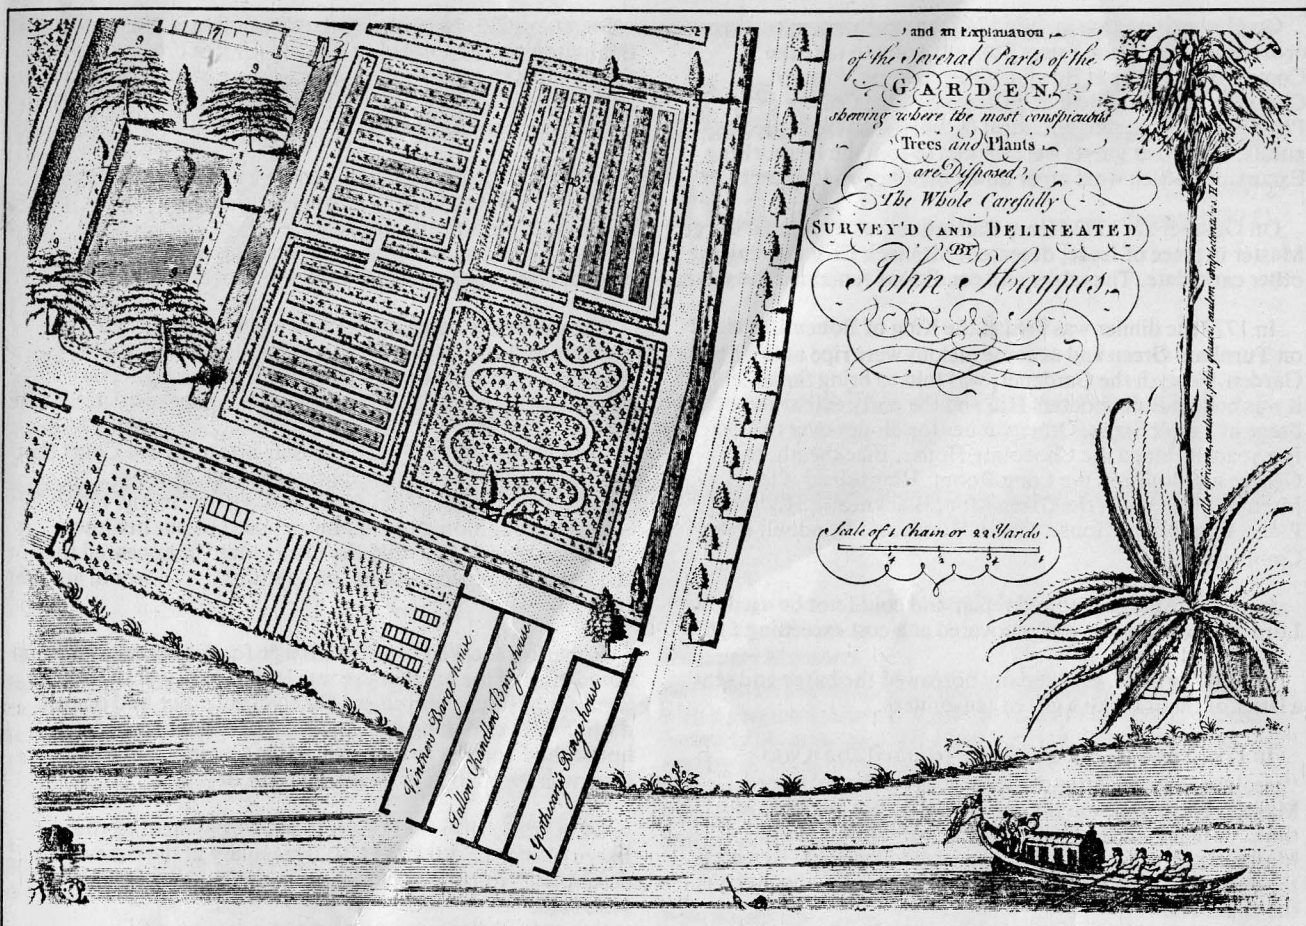 and an Explanation
of the Several Parts of the
GARDEN
shewing where the most conspicuous
Trees and Plants
are Dispos'd,
The Whole Carefully
SURVEY'D AND DELINEATED
BY
John Haynes.
Scale of 1 Chain or 22 Yards.
Vintners Bargehouse
Tallow Chandlers Bargehouse
Apothecary's Bargehouse
9
9
9
9